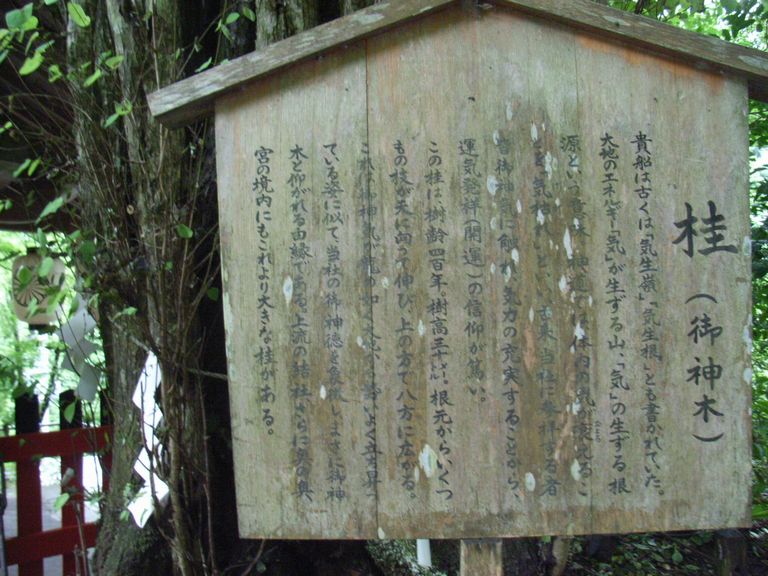 桂(御神木)
貴船は古くは「気生嶺」「気生根」とも書かれていた。
大地のエネルギー「気」が生ずる山、「気」の生ずる根
源という意味。神道では体内の気が衰えるこ
とを「気枯れ」といい、古来当社に参拝する者
皆御神気に触れ、気力の充実することから、
運気発祥(開運)の信仰が篤い。
この桂は、樹齢四百年、樹高三十メートル。根元からいくつ
もの枝が天に向って伸び、上の方で八方に広がる。
これは御神気が龍の如く大地から勢いよく立ち昇っ
ている姿に似て、当社の御神徳を象徴し、まさに御神
木と仰がれる由縁である。上流の結社、さらに奥の奥
宮の境内にもこれより大きな桂がある。